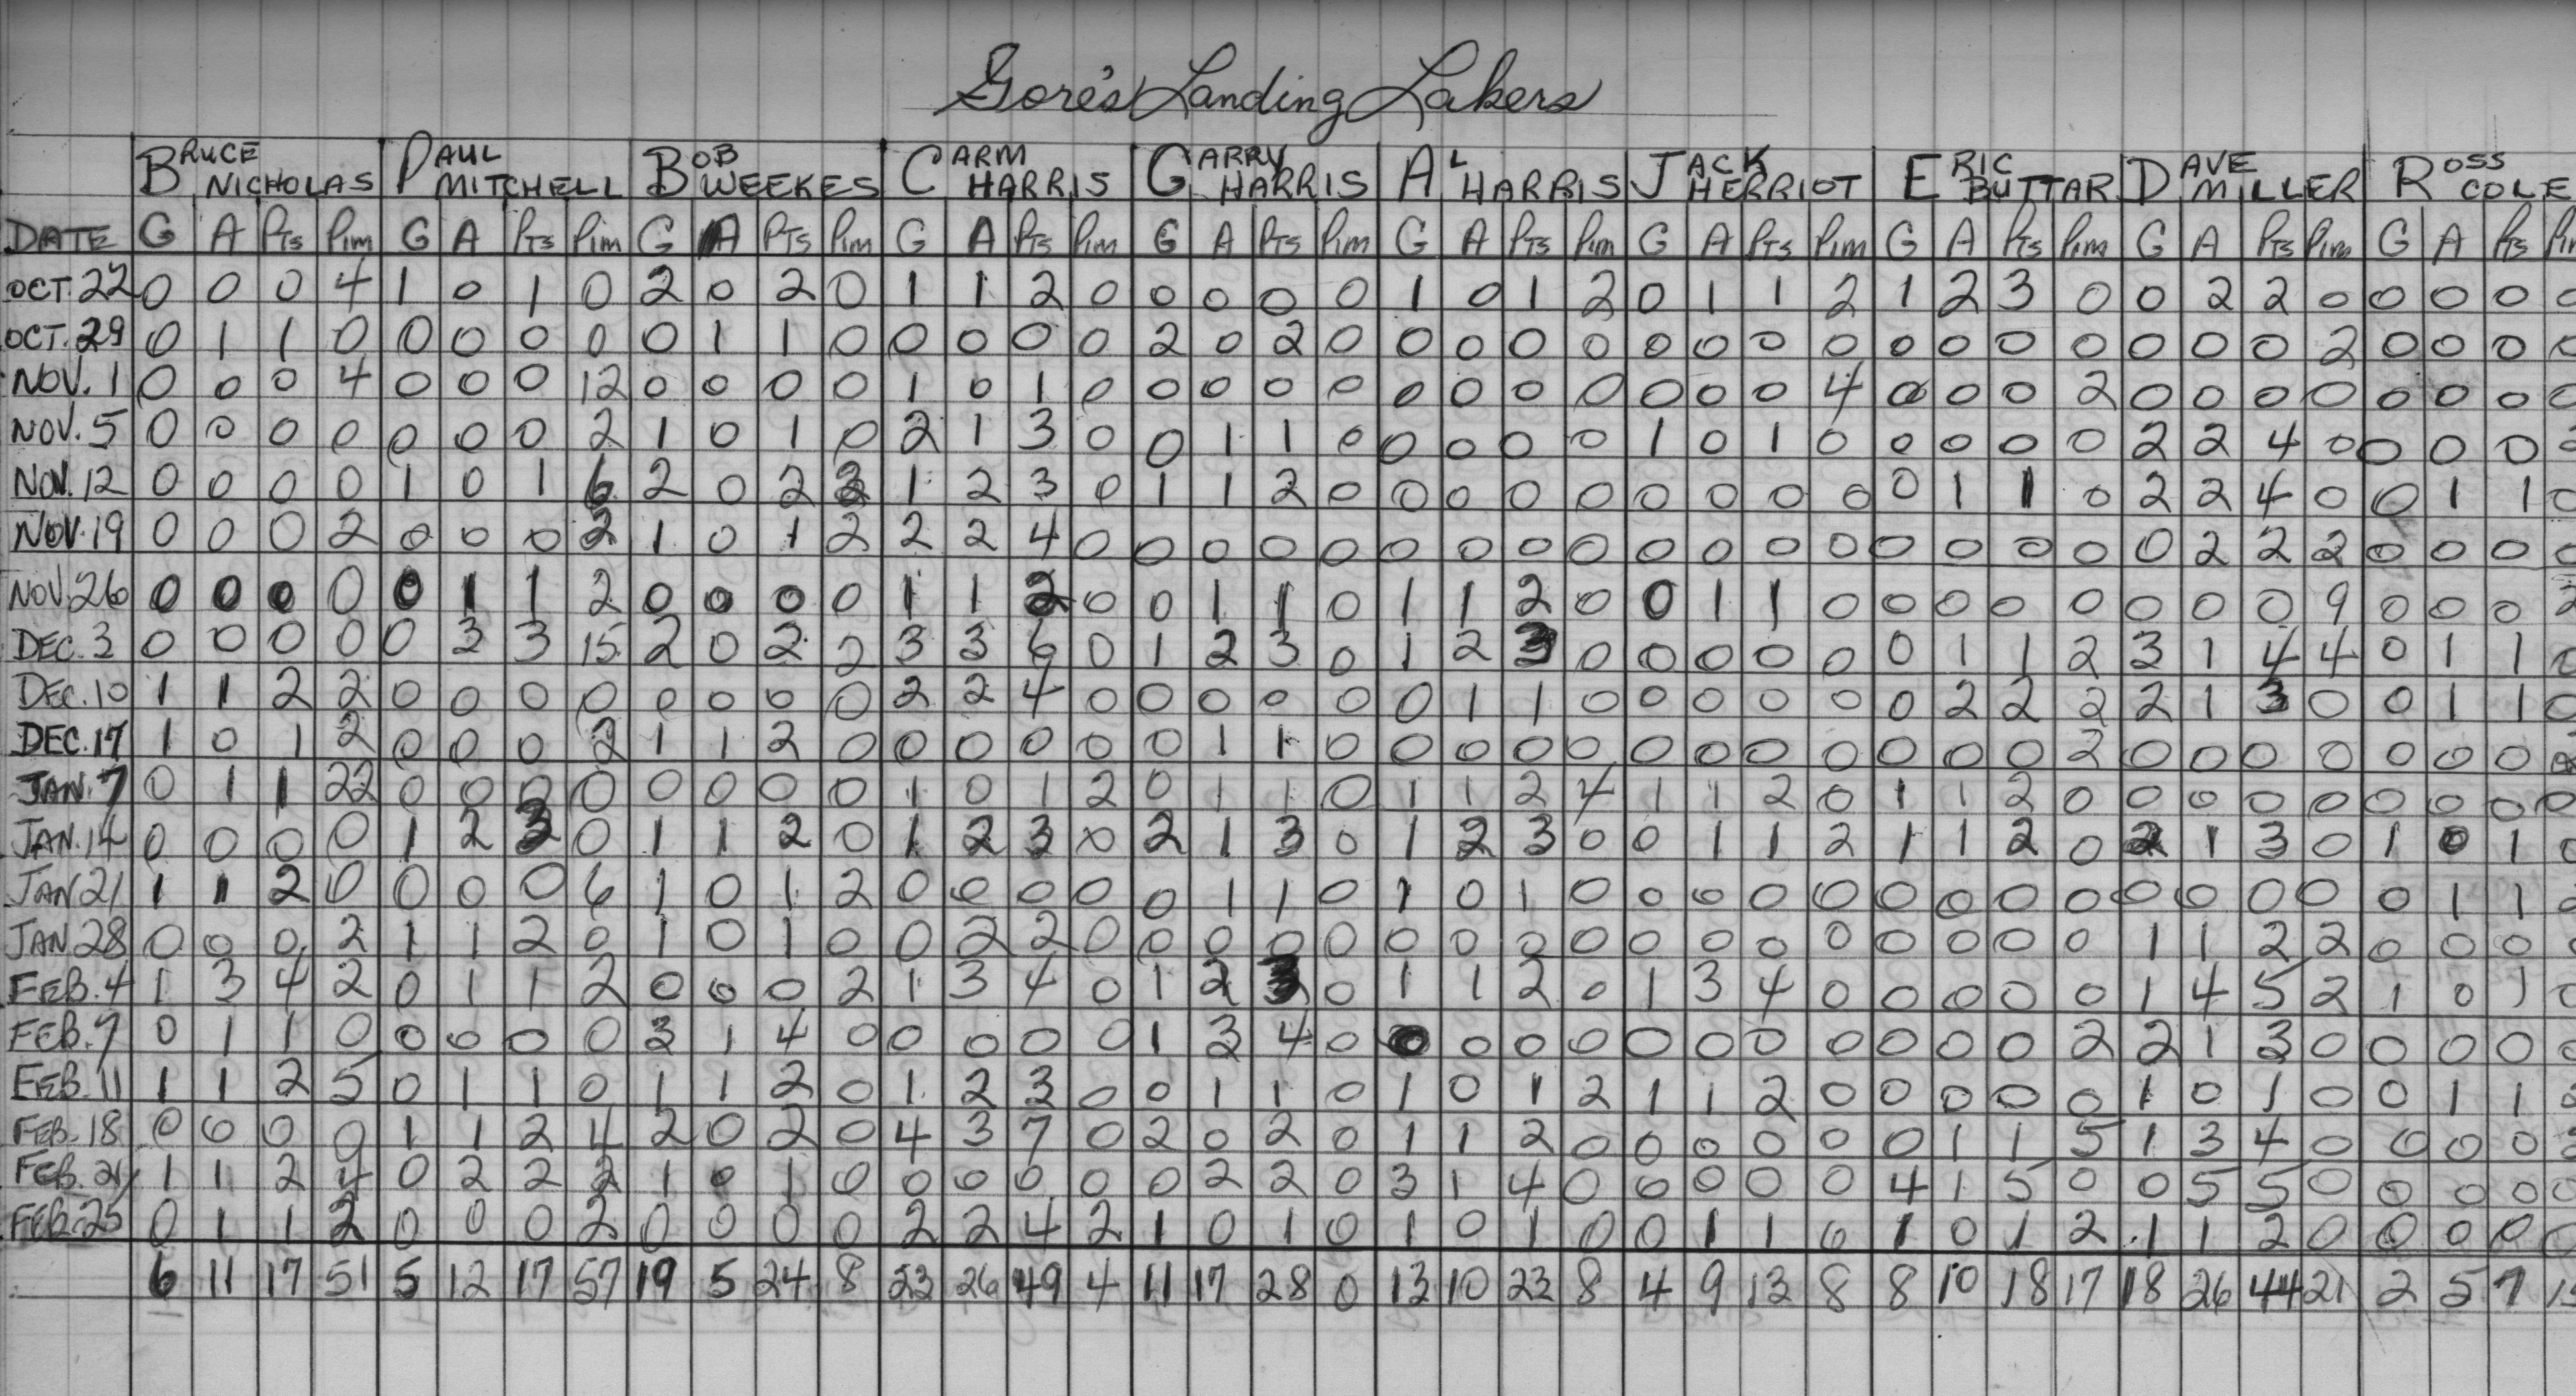 Gore's Landing Lakers
BRUCE NICHOLAS PAUL MITCHELL BOB WEEKES CARM HARRIS GARRY HARRIS AL HARRIS JACK HERRIOT ERIC BUTTAR DAVE MILLER ROSS COLE
DATE G A Pts Pim G A Pts Pim G A Pts Pim G A Pts Pim G A Pts Pim G A Pts Pim G A Pts Pim G A Pts Pim G A Pts Pim G A Pts
OCT. 22 0 0 0 4 1 0 1 0 2 0 2 0 1 1 2 0 0 0 0 0 1 0 1 2 0 1 1 2 1 2 3 0 0 2 2 0 0 0 0 0
OCT. 29 0 1 1 0 0 0 0 0 0 1 1 0 0 0 0 0 2 0 2 0 0 0 0 0 0 0 0 0 0 0 0 0 0 0 0 2 0 0 0 0
NOV. 1 0 0 0 4 0 0 0 12 0 0 0 0 1 0 1 0 0 0 0 0 0 0 0 0 0 0 0 4 0 0 0 2 0 0 0 0 0 0 0 0
NOV. 5 0 0 0 0 0 0 0 2 1 0 1 0 2 1 3 0 0 1 1 0 0 0 0 0 1 0 1 0 0 0 0 0 2 2 4 0 0 0 0
NOV. 12 0 0 0 0 1 0 1 6 2 0 2 2 1 2 3 0 1 1 2 0 0 0 0 0 0 0 0 0 0 1 1 0 2 2 4 0 0 1 1 0
NOV. 19 0 0 0 2 0 0 0 2 1 0 1 2 2 2 4 0 0 0 0 0 0 0 0 0 0 0 0 0 0 0 0 0 0 2 2 2 0 0 0 0
NOV. 26 0 0 0 0 0 1 1 2 0 0 0 0 1 1 2 0 0 1 1 0 1 1 2 0 0 1 1 0 0 0 0 0 0 0 0 9 0 0 0
DEC. 3 0 0 0 0 0 3 3 15 2 0 2 2 3 3 6 0 1 2 3 0 1 2 3 0 0 0 0 0 0 1 1 2 3 1 4 4 0 1 1 0
DEC. 10 1 1 2 2 0 0 0 0 0 0 0 0 2 2 4 0 0 0 0 0 0 1 1 0 0 0 0 0 0 2 2 2 2 1 3 0 0 1 1 0
DEC. 17 1 0 1 2 0 0 0 2 1 1 2 0 0 0 0 0 0 1 1 0 0 0 0 0 0 0 0 0 0 0 0 2 0 0 0 0 0 0 0
JAN. 7 0 1 1 22 0 0 0 0 0 0 0 0 1 0 1 2 0 1 1 0 1 1 2 4 1 1 2 0 1 1 2 0 0 0 0 0 0 0 0 0
JAN. 14 0 0 0 0 1 2 3 0 1 1 2 0 1 2 3 0 2 1 3 0 1 2 3 0 0 1 1 2 1 1 2 0 2 1 3 0 1 0 1 0
JAN 21 1 1 2 0 0 0 0 6 1 0 1 2 0 0 0 0 0 1 1 0 1 0 1 0 0 0 0 0 0 0 0 0 0 0 0 0 0 1 1
JAN. 28 0 0 0 2 1 1 2 0 1 0 1 0 0 2 2 0 0 0 0 0 0 0 0 0 0 0 0 0 0 0 0 0 1 1 2 2 0 0 0 0
FEB. 4 1 3 4 2 0 1 1 2 0 0 0 2 1 3 4 0 1 2 3 0 1 1 2 0 1 3 4 0 0 0 0 0 1 4 5 2 1 0 1 0
FEB. 7 0 1 1 0 0 0 0 0 3 1 4 0 0 0 0 0 1 3 4 0 0 0 0 0 0 0 0 0 0 0 0 2 2 1 3 0 0 0 0 0
FEB. 11 1 1 2 5 0 1 1 0 1 1 2 0 1 2 3 0 0 1 1 0 1 0 1 2 1 1 2 0 0 0 0 0 1 0 1 0 0 1 1
FEB. 18 0 0 0 0 1 1 2 4 2 0 2 0 4 3 7 0 2 0 2 0 1 1 2 0 0 0 0 0 0 1 1 5 1 3 4 0 0 0 0
FEB. 21 1 1 2 4 0 2 2 2 1 0 1 0 0 0 0 0 0 2 2 0 3 1 4 0 0 0 0 0 4 1 5 0 0 5 5 0 0 0 0 0
FEB. 25 0 1 1 2 0 0 0 2 0 0 0 0 2 2 4 2 1 0 1 0 1 0 1 0 0 1 1 0 1 0 1 2 1 1 2 0 0 0 0 0
6 11 17 51 5 12 17 57 19 5 24 8 23 26 49 4 11 17 28 0 13 10 23 8 4 9 13 8 8 10 18 17 18 26 44 21 2 5 7